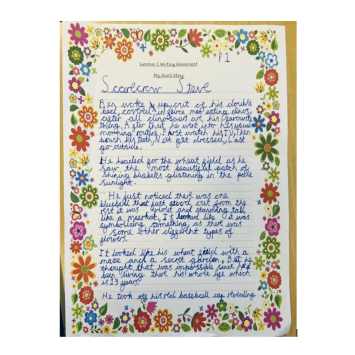 P1
Summer 2 Writing Assessment
My Short Story
Scarecrow Steve
Ben woke up, out of his double
bed, covered in green meat eating dinos,
after all dinosaurs are his favourite
thing. After that he went into his usual
morning routine, First watch his TV, Then
brush his teeth, Next get dressed, Last
go outside.
He headed for the wheat field as he
saw the most beautiful batch of
shining bluebells glistening in the pale
sunlight.
He just noticed there was one
bluebell that just stood out from the
rest it was bright and standing tall
like a meerkat. It looked like it was
symbolizing something, as there was
some other different types of
flowers.
It looked like his wheat field with a
maze and a secret garden. But he
thought that was impossible since he'd
been living there his whole life which
is 23 years.
He took off his red baseball cap revealing